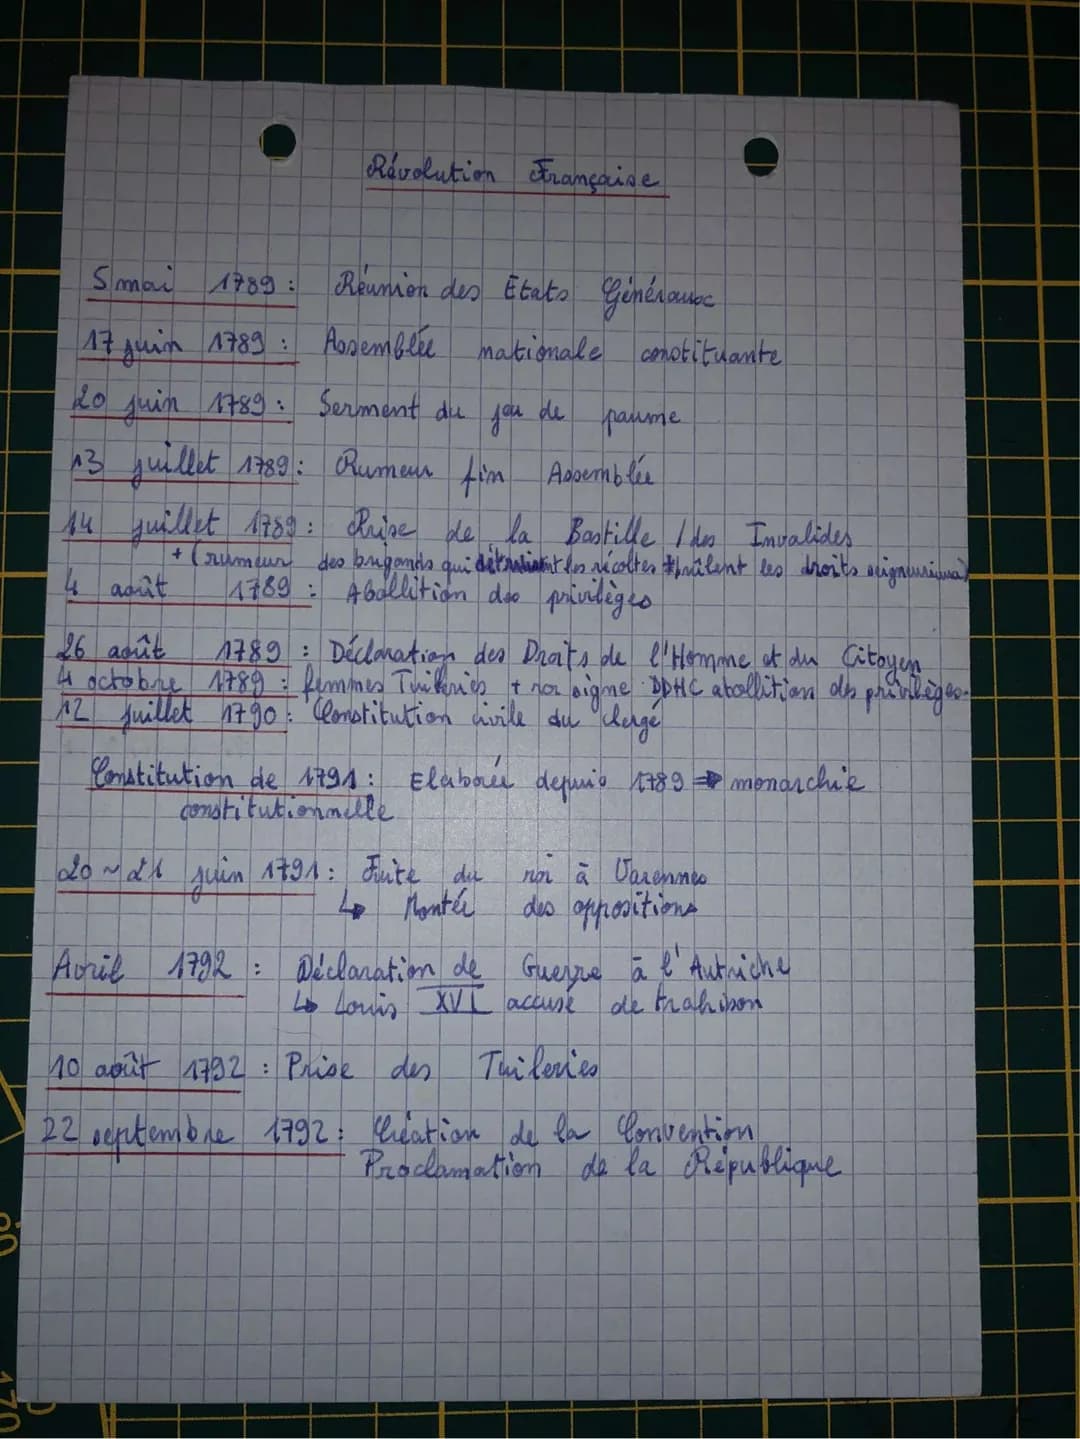 Révolution Française
5 mai 1789 : Réunion des Etats Généraux
17 juin 1789 : Assemblée nationale constituante
20 juin 1789 : Serment du jeu de paume
13 juillet 1789 : Rumeur fin Assemblée
14 juillet 1789 : Prise de la Bastille / des Invalides
+ (rumeur des brigands qui détruisent les récoltes + brûlent les droits seigneuriaux)
4 août 1789 : Abollition des privilèges
26 août 1789 : Déclaration des Droits de l'Homme et du Citoyen
4 octobre 1789 : femmes Tuileries + roi signe DDHC abollition des privilèges.
12 juillet 1790 : Constitution civile du clergé
Constitution de 1791 : Elaborée depuis 1789 ⇒ monarchie
constitutionnelle
20 ~ 21 juin 1791 : Fuite du roi à Varennes
↳ Montée des oppositions
Avril 1792 : Déclaration de Guerre à l'Autriche
↳ Louis XVI accusé de trahison
10 août 1792 : Prise des Tuileries
22 septembre 1792 : Création de la Convention
Proclamation de la République
170